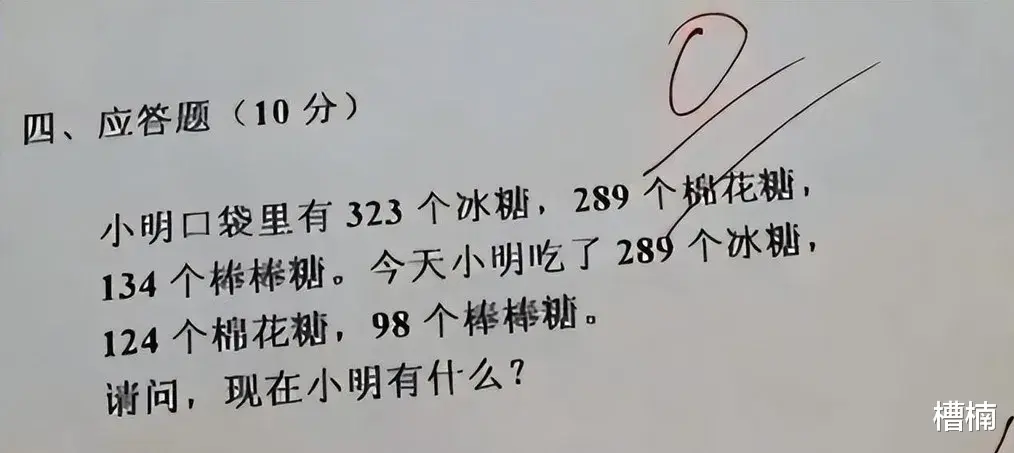 0
四、应答题（10 分）
小明口袋里有 323 个冰糖，289 个棉花糖，
134 个棒棒糖。今天小明吃了 289 个冰糖，
124 个棉花糖，98 个棒棒糖。
请问，现在小明有什么？
槽楠